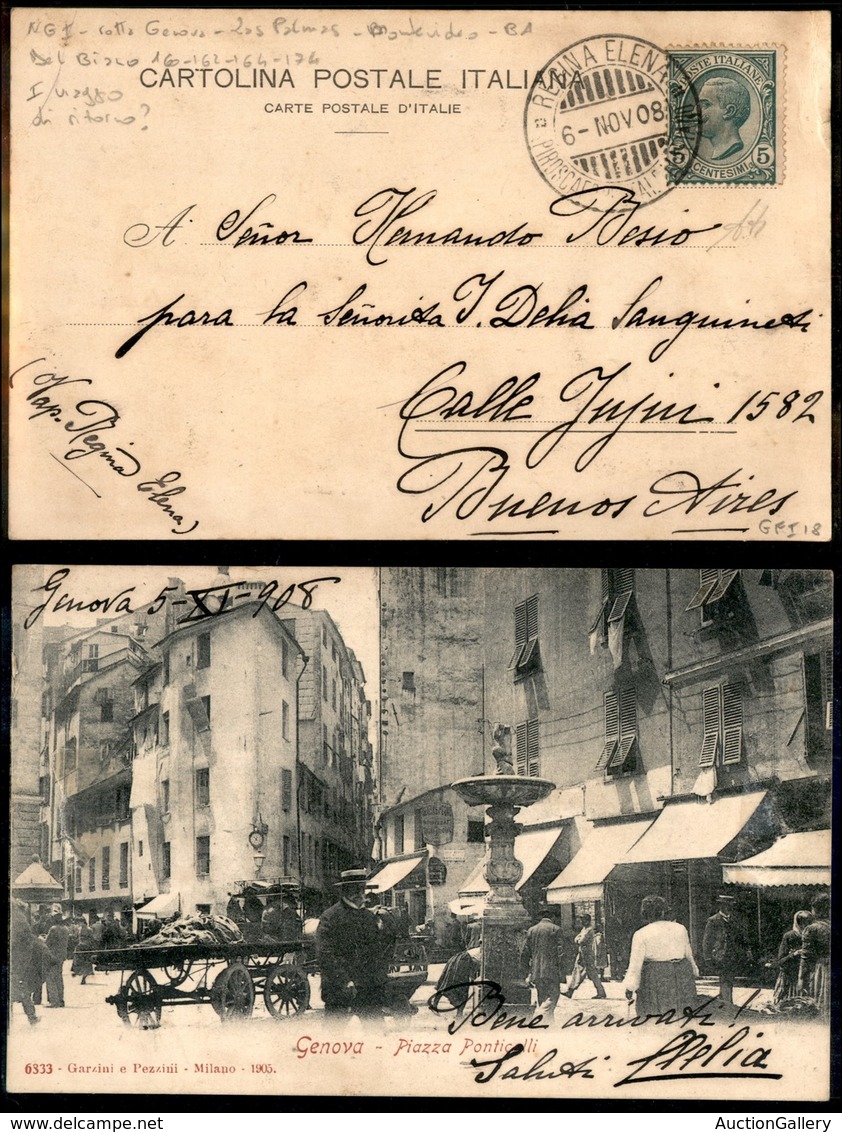 NGI - rotta Genova - Las Palmas - Montevideo - BA
Del Bianco 160-162-164-174
I viaggio
di ritorno?
CARTOLINA POSTALE ITALIANA
CARTE POSTALE D'ITALIE
REGINA ELENA
6-NOV 08
POSTE ITALIANE
5 CENTESIMI 5
A Señor Hernando Besio
para la Señorita J. Delia Sanguineti
Calle Jujui 1582
Buenos Aires
(Vap. Regina Elena)
GFI18
Genova 5-XI-908
Bene arrivati!
Genova - Piazza Ponticelli
Saluti Clelia
6333 - Garzini e Pezzini - Milano - 1905.
AuctionGallery